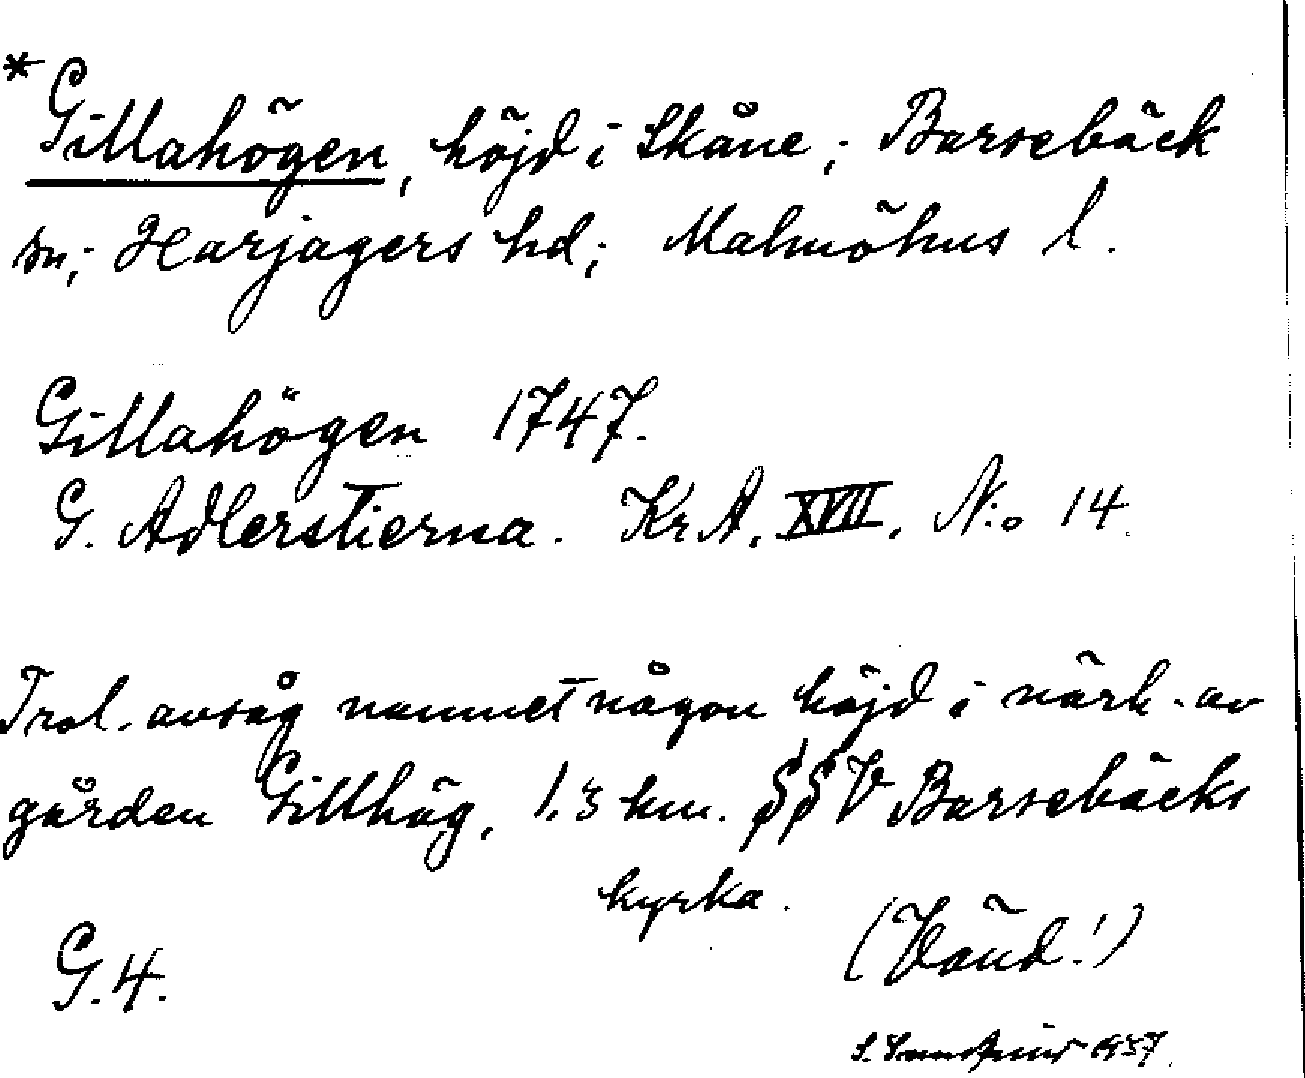 * Gillahögen, höjd i Skåne; Barsebäck
sn; Harjagers hd; Malmöhus l.
Gillahögen 1747.
G. Adlerstierna. Kr A. XVII, N:o 14
Trol. avsåg namnet någon höjd i närh. av
gården Gillhög, 1.3 km. SSV Barsebäcks
kyrka.
(Vänd!)
G.4.
1937.